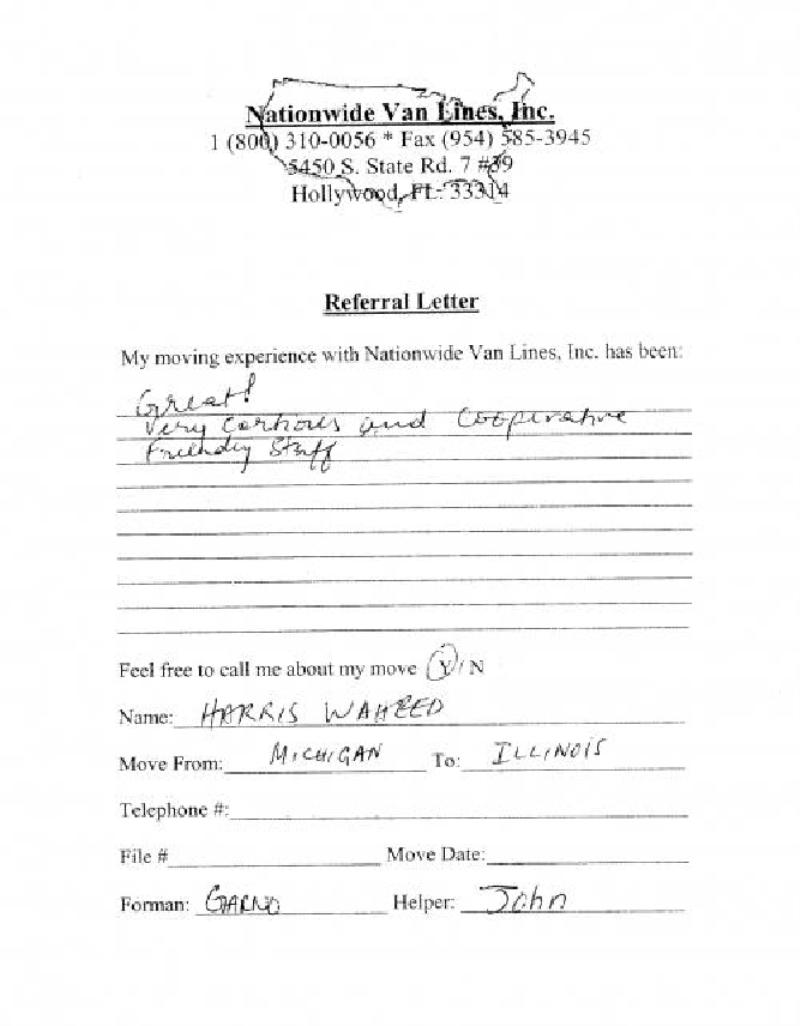 Nationwide Van Lines, Inc.
1 (800) 310-0056 * Fax (954) 585-3945
5450 S. State Rd. 7 #39
Hollywood, FL. 33314
Referral Letter
My moving experience with Nationwide Van Lines, Inc. has been:
Great!
Very Cortious and Cooperative
Friendly Staff
Feel free to call me about my move Y / N
Name: HARRIS WAHEED
Move From: MICHIGAN To: ILLINOIS
Telephone #:
File # Move Date:
Forman: Helper: John